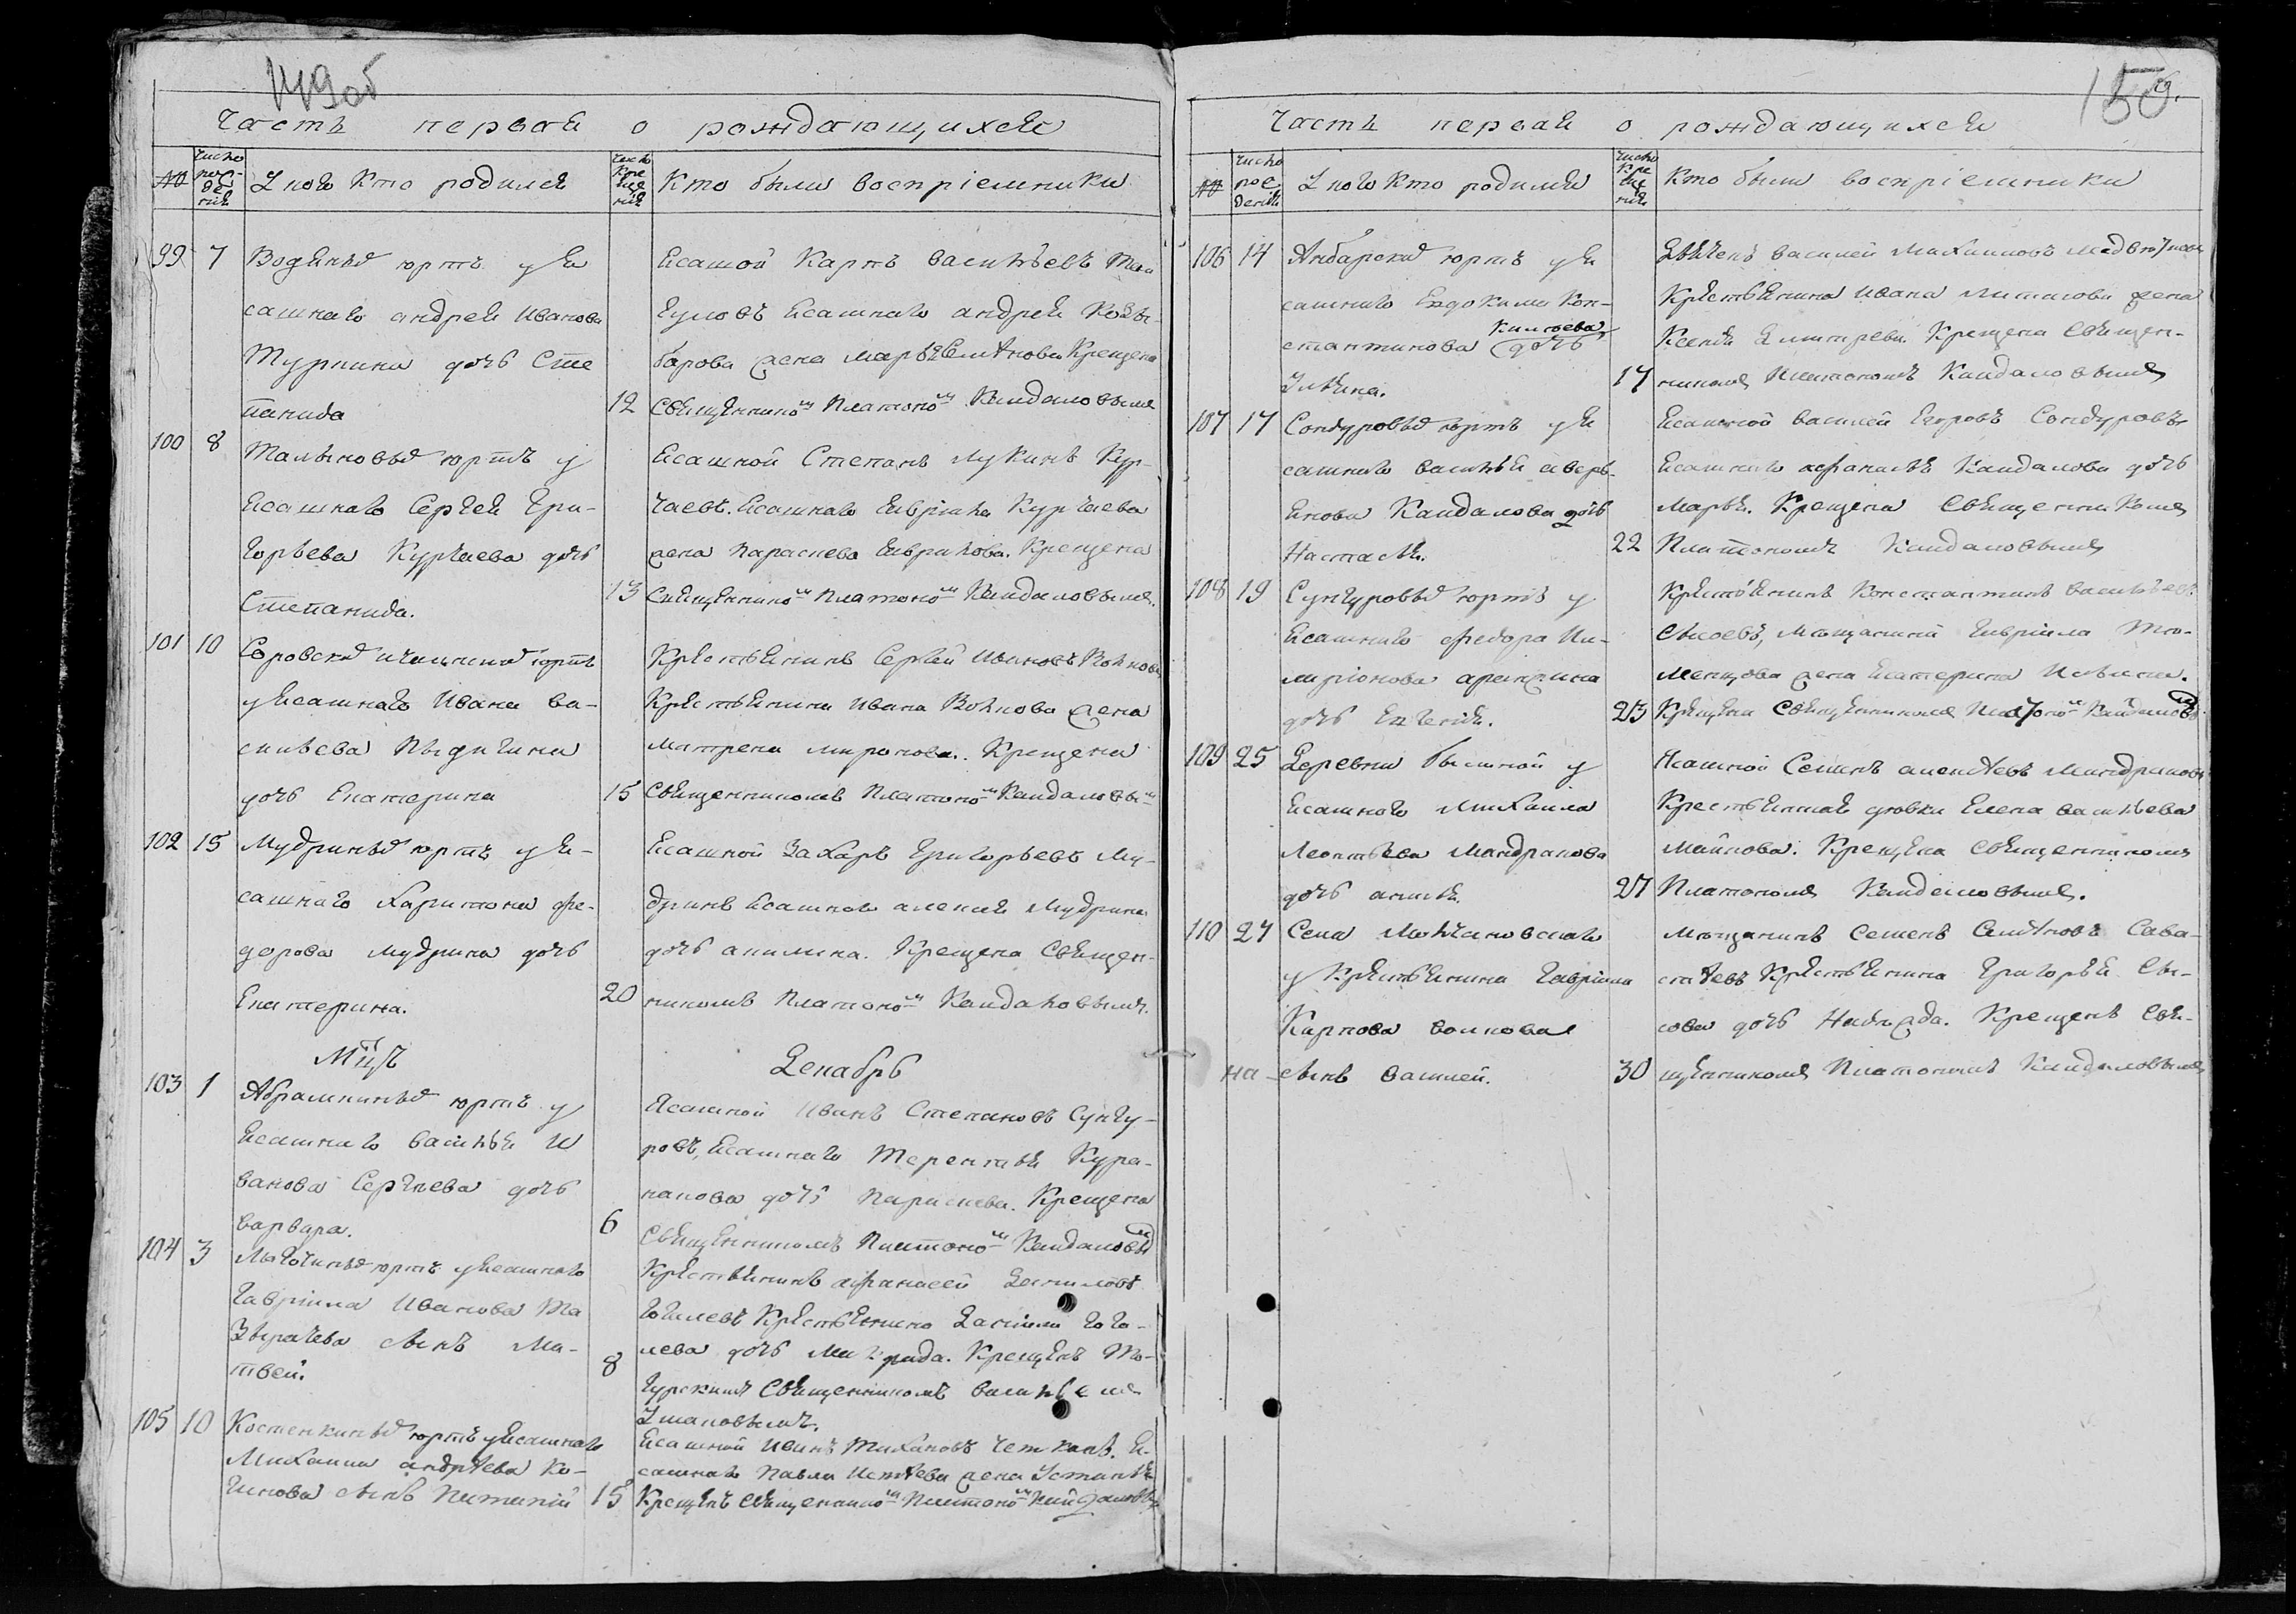 149об
Часть первая о рождающихся
№ Число рождения У кого кто родился Число крещения Кто были воспріемники
99 7 Водяныхъ юртъ у я
сашнаго андрея Иванова
Туркина дочь Сте
панида
Ясашой Карпъ васильевъ
ясашнаго андрея
жена марья Семенова Крещена
12 Священникомъ Платономъ Кайдаловымъ
100 8 Талыновыхъ юртъ у
Ясашнаго Сергея Гри-
горьева Курчаева дочь
Степанида.
Ясашной Степанъ Лукинъ Кур-
чаевъ. Ясашнаго Гавріила Курчаева
жена параскева Гаврилова. Крещена
13 Священникомъ Платономъ Кайдаловымъ.
101 10 юртъ
у Ясашнаго Ивана ва-
сильева Пыдигина
дочь Екатерина
Крестьянинъ Сергей Ивановъ Волковъ
Крестьянина Ивана Волкова жена
матрена миронова. Крещена
15 Священникомъ Платономъ Кайдаловымъ
102 15 Мудриныхъ юртъ у Я-
сашнаго Харитона Фе-
дорова Мудрина дочь
Екатерина.
Ясашной Захаръ Григорьевъ Му-
дринъ Ясашнаго алексея Мудрина
дочь акилина. Крещена Священ-
20 никомъ Платономъ Кайдаловымъ.
Мцъ Декабрь
103 1 Абрамкиныхъ юртъ у
Ясашнаго васильея И
ванова Сергеева дочь
варвара.
Ясашной Иванъ Степановъ Сунгу-
ровъ, Ясашнаго Терентья Кура-
накова дочь параскева. Крещена
6 Священникомъ Платономъ Кайдаловымъ
104 3 юртъ у Ясашнаго
Гавріила Иванова Та
зырачева сынъ Ма-
твей.
Крестьянинъ афанасей Даниловъ
Гоголевъ Крестьянина Даниила Гого-
лева дочь Крещенъ То-
8 гурскимъ Священникомъ васильемъ
105 10 Костенкиныхъ юртъ у Ясашнаго
Михаила андреева Ко-
сынъ
Ясашной Иванъ Я-
сашнаго Павла жена
15 Крещенъ Священникомъ Платономъ Кайдаловымъ
150
Часть первая о рождающихся
№ Число рождения У кого кто родился Число крещения Кто были воспріемники
106 14 Анбарскихъ юртъ у я
сашнаго Евдокима Кон-
стантинова дочь
Ульяна.
василей Михаиловъ
Крестьянина Ивана жена
Ксенья Димитрева. Крещена Священ-
17 никомъ Платономъ Кайдаловымъ
107 17 Сондуровыхъ юртъ у Я
сашнаго васильея аверь-
янова Кайдалова дочь
Настасья.
Ясашной василей Егоровъ Сондуровъ
Ясашнаго афанасья Кайдалова дочь
Марья. Крещена Священникомъ
22 Платономъ Кайдаловымъ
108 19 Сунгуровыхъ юртъ у
Ясашнаго Федора
дочь Евгенія.
Крестьянинъ Константинъ васильевъ
Сысоевъ, мещанина Гавріила Тю-
менцова жена Екатерина
23 Крещена Священникомъ Платономъ Кайдаловымъ
109 25 Деревни у
Ясашнаго Михаила
Леонтьева Мандракова
дочь анисья.
Ясашной Семенъ алексеевъ Мандраковъ
Крестьянская девка Елена васильева
Майкова. Крещена Священникомъ
27 Платономъ Кайдаловымъ.
110 27 Села Молчановскаго
у Крестьянина Гавріила
Карпова волкова
на сынъ василей.
мещанинъ Семенъ Семеновъ Сава-
стеевъ Крестьянина Григорья Сы-
сова дочь Надежда. Крещенъ Свя-
30 щенникомъ Платономъ Кайдаловымъ